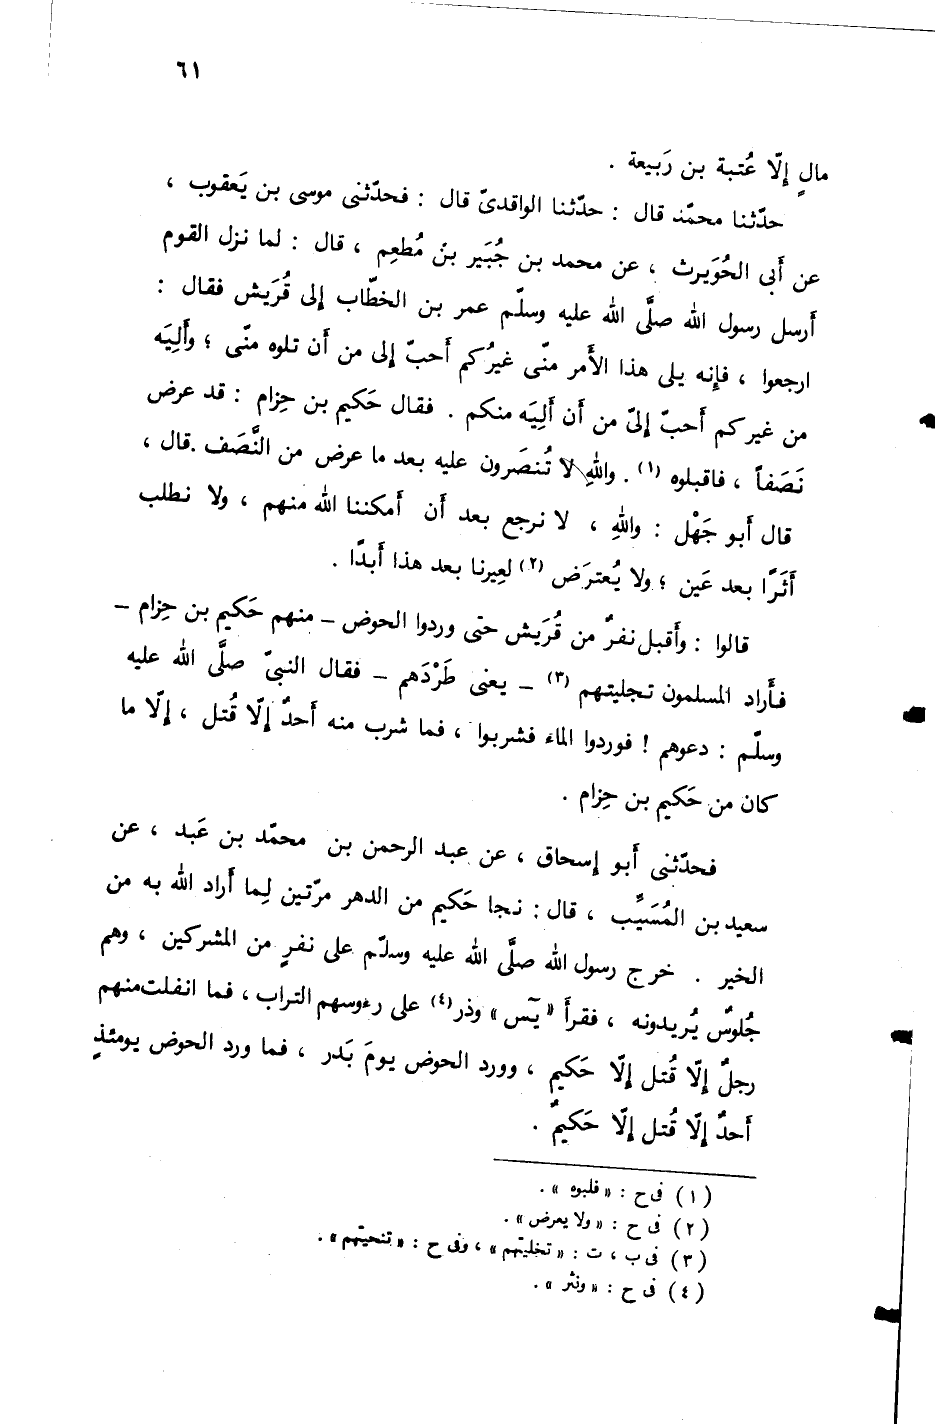 ٦١
مالٍ إلّا عُتبة بن رَبيعة .
حدّثنا محمّد قال : حدّثنا الواقدىّ قال : فحدّثنى موسى بن يَعقوب ،
عن أَبى الحُوَيرث ، عن محمد بن جُبَير بنُ مُطعِم ، قال : لما نزل القوم
أَرسل رسول الله صلَّى الله عليه وسلّم عمر بن الخطّاب إلى قُرَيش فقال :
ارجعوا ، فإنه يلى هذا الأَمر منّى غيرُكم أَحبّ إلى من أَن تلوه منّى ؛ وأَلِيَه
من غيركم أَحبّ إلىّ من أَن أَلِيَه منكم . فقال حَكيم بن حِزام : قد عرض
نَصَفاً ، فاقبلوه (١) . واللهِ لا تُنصَرون عليه بعد ما عرض من النَّصَف .قال ،
قال أَبو جَهْل : واللهِ ، لا نرجع بعد أَن أَمكننا الله منهم ، ولا نطلب
أَثَرًا بعد عَين ؛ ولا يُعترَض (٢) لعِيرنا بعد هذا أَبدًا .
قالوا : وأَقبل نفرٌ من قُرَيش حتى وردوا الحوض – منهم حَكيم بن حِزام –
فأَراد المسلمون تجليتهم (٣) – يعنى طَرْدَهم – فقال النبىّ صلَّى الله عليه
وسلّم : دعوهم ! فوردوا الماء فشربوا ، فما شرب منه أَحدٌ إلّا قُتل ، إلّا ما
كان من حَكيم بن حِزام .
فحدّثنى أَبو إسحاق ، عن عبد الرحمن بن محمّد بن عَبد ، عن
سعيد بن المُسَيِّب ، قال : نجا حَكيم من الدهر مرّتين لِما أَراد الله به من
الخير . خرج رسول الله صلَّى الله عليه وسلّم على نفرٍ من المشركين ، وهم
جُلوسٌ يُريدونه ، فقرأَ «يَس» وذر(٤) على رءوسهم التراب ، فما انفلت منهم
رجلٌ إلّا قُتل إلّا حَكيم ، وورد الحوض يومَ بَدر ، فما ورد الحوض يومئذٍ
أَحدٌ إلّا قُتل إلّا حَكيمٌ .
(١) فى ح : «فلبوه» .
(٢) فى ح : «ولا يعرض» .
(٣) فى ب ، ت : «تخليتهم» ، وفى ح : «تنحيتهم» .
(٤) فى ح : «ونثر» .